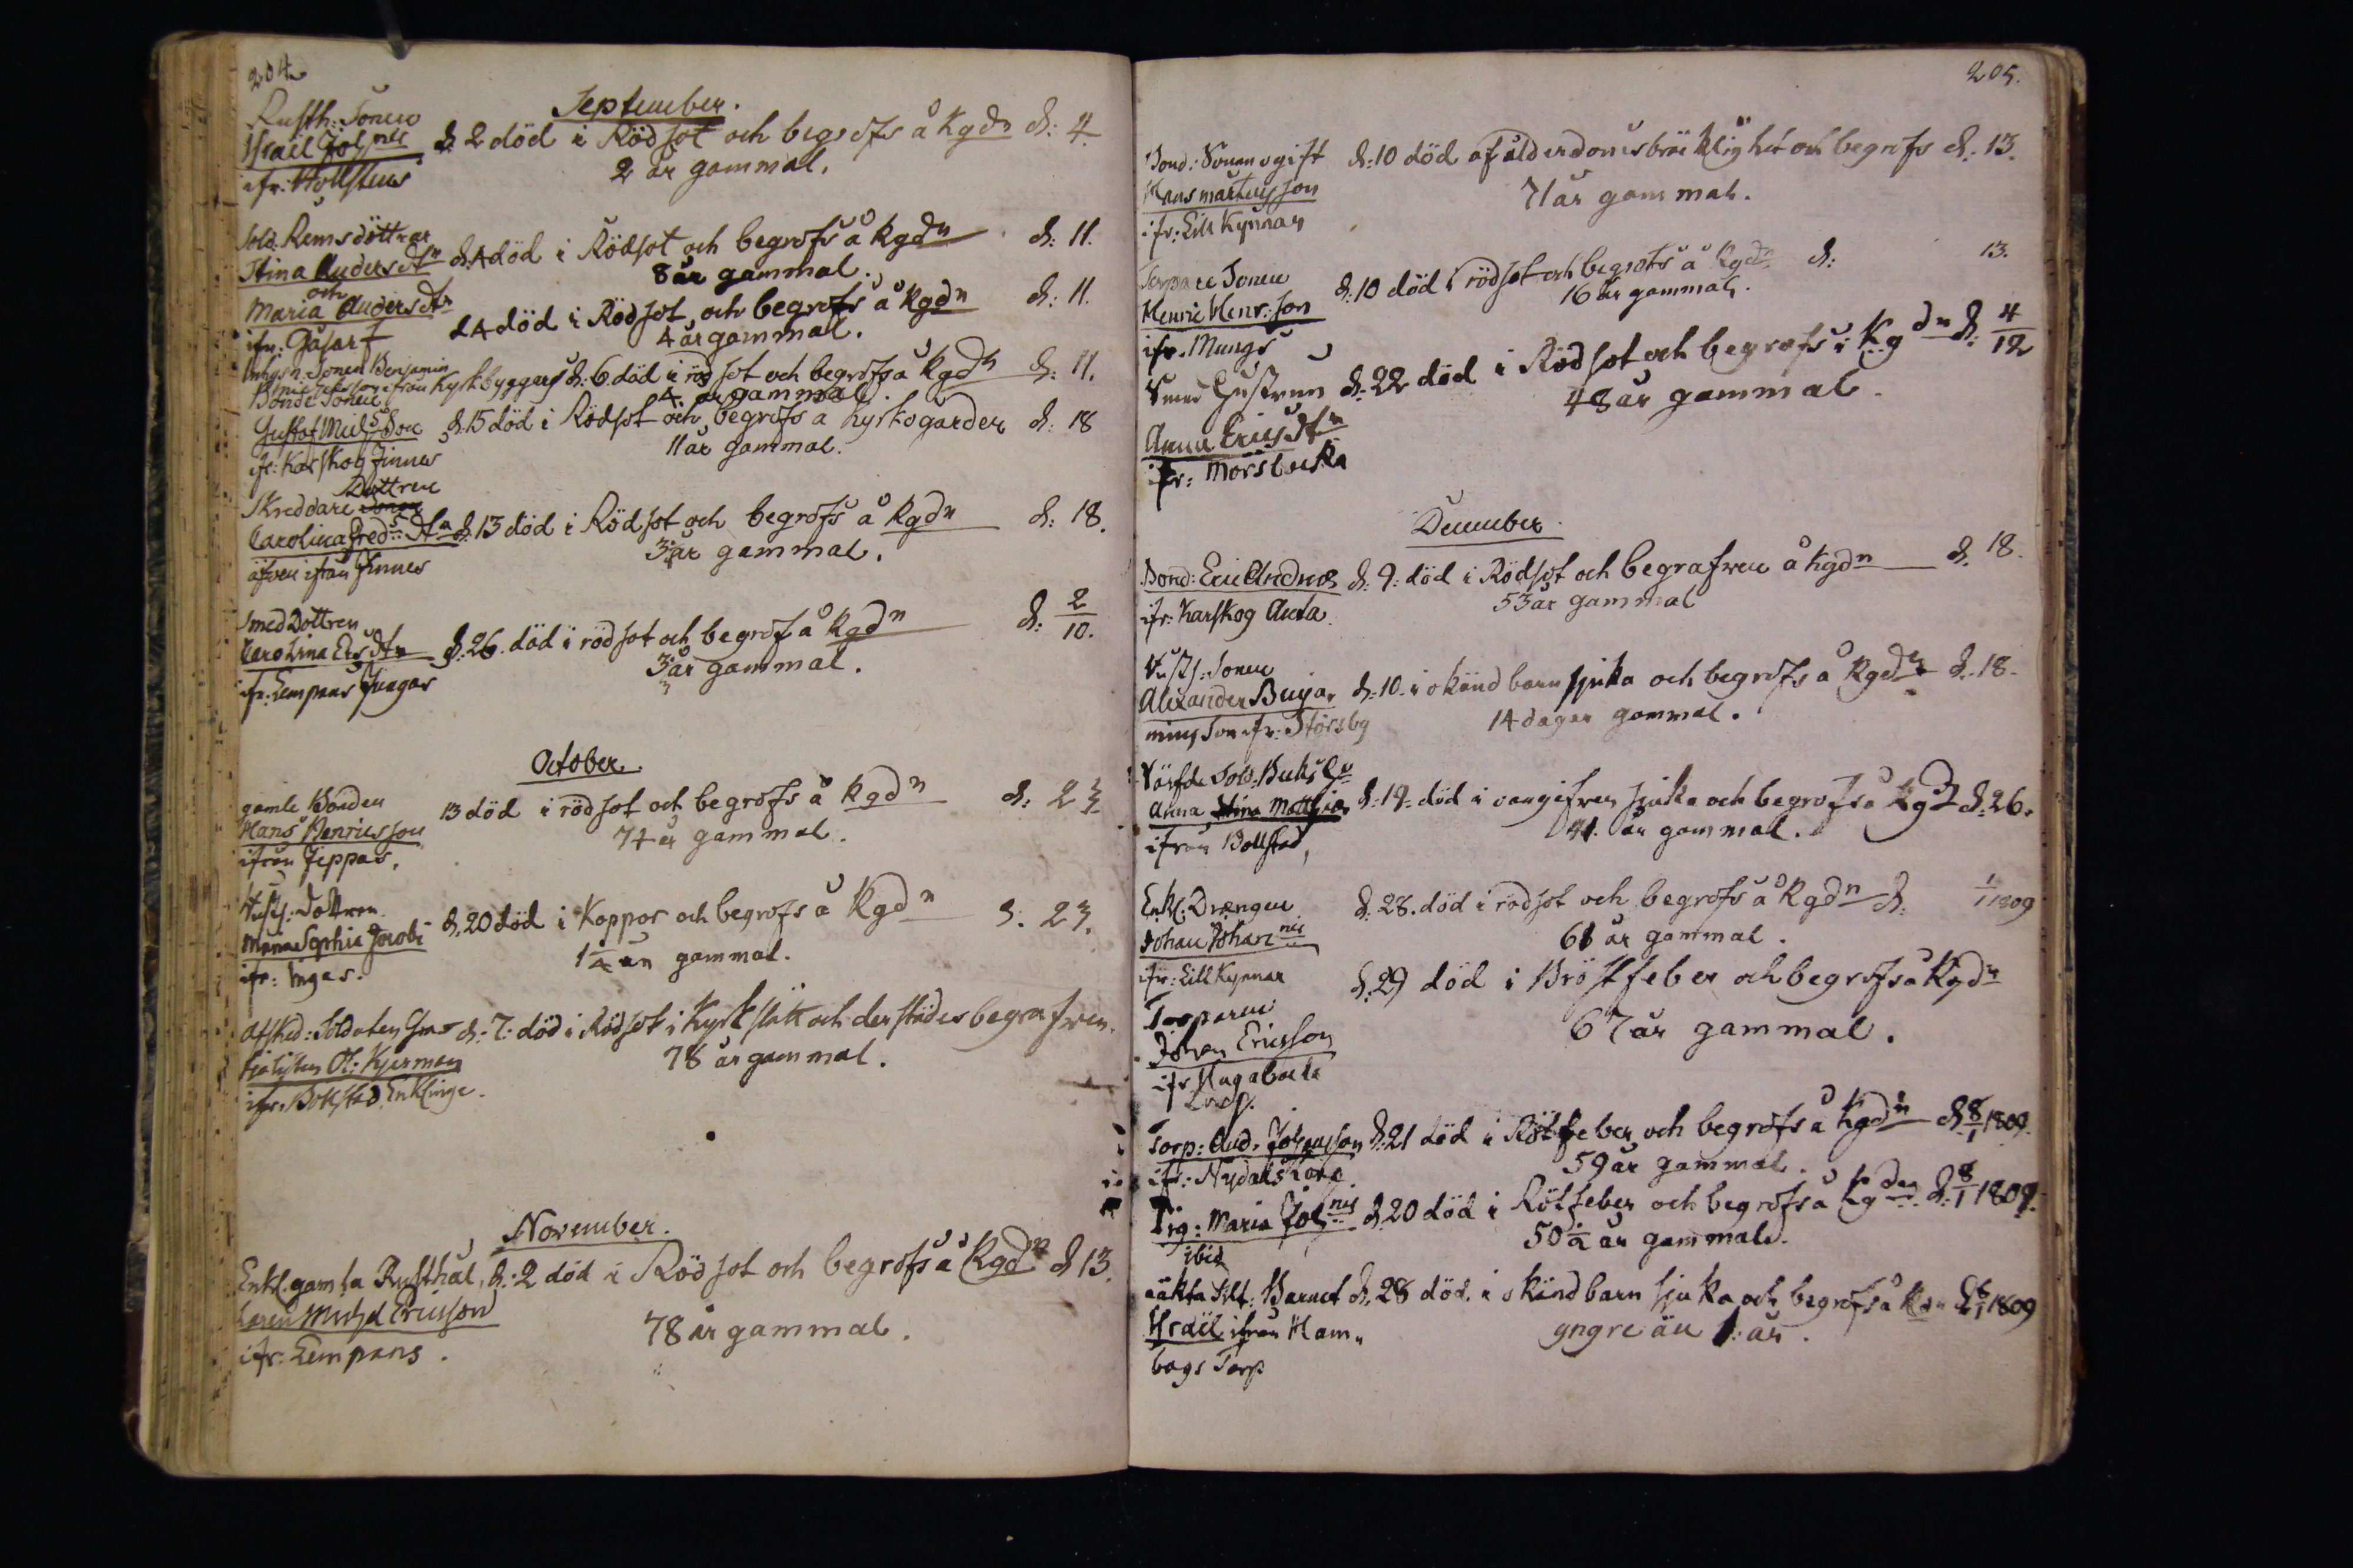 204.
September.
Rusth: Sonen
Israel Joh nis d: 2 död i Rödsot och begrofs å Kgdn d: 4
ifr: Hollstens 2 år gammal.
Sold. Rems döttrar
Stina Anders dtr d. 4 död i Rödsot och begrofs å Kgdn d: 11.
8 år gammal.
och
Maria Anders dtr d. 4 död i Rödsot och begrofs å Kgdn d: 11.
ifr: 4 år gammal.
Sonen Benjamin
ifrån Kyrkbyggars d: 6 död i rödsot och begrofs å Kgdn d: 11.
4 år gammal.
Bonde Sonen
Gustaf Mich Son d. 15 död i Rödsot och begrofs å Kyrkogården d: 18
ifr: Karskog Finnes 11 år gammal.
Dottren
Skreddare Sonen
Carolina Fred: dtr d. 13 död i Rödsot och begrofs å Kgdn d: 18.
äfven ifrån Finnes 3 år gammal.
Smed Dottren
Carolina Ers dtr d: 26. död i rödsot och begrof å Kgdn d: 2/10.
ifr: Lempans 3 år gammal.
October.
gamle Bonden
Hans Henricsson 13 död i rödsot och begrofs å Kgdn d: 23
ifrån Jeppas. 74 år gammal.
dottren
Maria Sophia Jacobi d. 20 död i Koppor och begrofs å Kgdn d: 23.
ifr: Ingas. 1 1/4 år gammal.
Afsked: Soldaten d: 7: död i Rödsot i Kyrkslätt och derstädes begrafven.
Ol: Kjerman 78 år gammal.
ifr. Bollstad Enklinge.
November.
Enkl. gamla Rusthål, d: 2 död i Rödsot och begrofs å Kgdn d 13.
Mich l Ericsson 78 år gammal.
ifr: Lempans.
205.
Bond: Sonen ogift d: 10 död af ålderdomsbräcklighet och begrofs d: 13.
Hans Martensson 71 år gammal.
ifr: Lill Kynnar
Torpare Sonen
Henric Henr: son d: 10 död i rödsot och begrofs å Kgdn d: 13.
ifr. Mungs 16 år gammal.
Smed Hustrun d: 22 död i Rödsot och begrofs i Kgdn d: 4/12
Anna Erics dtr 48 år gammal.
ifr: Morsbacka
December
Bond: Eric Andrs d. 9: död i Rödsot och begrafven å Kgdn d. 18.
ifr: Karskog Anta. 53 år gammal
Sonen
Alexander Benja d: 10. i okänd barn sjuka och begrofs å Kgdn d. 18.
mins Son ifr: Störsby 14 dagar gammal.
Värfde Sold. Buks
Anna Stina Mattsia d: 19. död i oangifven sjuka och begrofs å Kgd d: 26.
ifrån Bollstad, 41 år gammal.
Enkl: Drängen d: 28. död i rödsot och begrofs å Kgdn d: 1/1 1809
Johan Johan nis 61 år gammal.
ifr: Lill Kynnar
Torparen d: 29 död i Bröstfeber och begrofs å Kgdn
Johan Ericsson 67 år gammal.
ifr Hagabacka
Torp: And: Johansson d: 21 död i Rötfeber och begrofs å Kgdn d 8/1 1809.
ifr: Nydals Torp. 59 år gammal.
Pig: Maria Joh nis d. 20 död i Rötfeber och begrofs å Kgden d. 8/1 1809.
ibid 50 1/2 år gammal.
oäkta Barnet d. 28 död. i okänd barn sjuka och begrofs å 8/1 1809
Israel ifrån Ham„ yngre än 1: år.
bags Torp